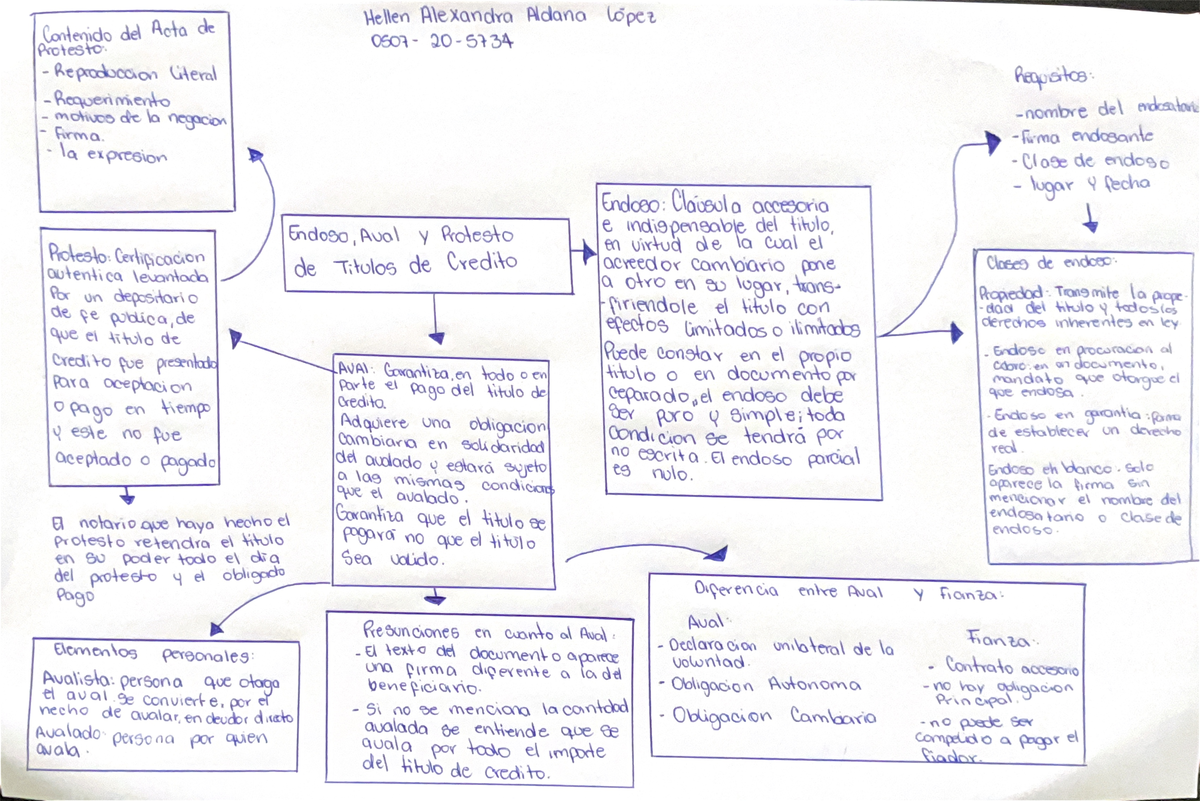 Hellen Alexandra Aldana López
0507-20-5734
Contenido del Acta de
Protesto:
- Reproduccion Literal
- Requerimiento
- motivos de la negacion
- Firma.
- la expresion
Protesto: Certificacion
autentica levantada
Por un depositario
de fe publica, de
que el titulo de
credito fue presentado
para aceptacion
o pago en tiempo
y este no fue
aceptado o pagado
El notario que haya hecho el
protesto retendra el titulo
en su poder todo el dia
del protesto y el obligado
Pago
Endoso, Aval y Protesto
de Titulos de Credito
AVAl: Garantiza, en todo o en
parte el pago del titulo de
credito.
Adquiere una obligacion
cambiaria en solidaridad
del avalado y estará sujeto
a las mismas condiciones
que el avalado.
Garantiza que el titulo se
pagará no que el titulo
sea valido.
Endoso: Claúsula accesoria
e indispensable del titulo,
en virtud de la cual el
acreedor cambiario pone
a otro en su lugar, trans-
-firiendole el titulo con
efectos limitados o ilimitados
Puede constar en el propio
titulo o en documento por
ceparado, el endoso debe
ser puro y simple; toda
condicion se tendrá por
no escrita. El endoso parcial
es nulo.
Requisitos:
- nombre del endosatario
- Firma endosante
- Clase de endoso
- lugar y fecha
Clases de endoso:
Propiedad: Transmite la prope-
-dad del titulo y todos los
derechos inherentes en ley
- Endoso en procuracion al
cobro: en un documento,
mandato que otorgue el
que endosa.
- Endoso en garantia: forma
de establecer un derecho
real.
Endoso en blanco. Solo
aparece la firma sin
mencionar el nombre del
endosatario o clase de
endoso.
Elementos personales:
Avalista: persona que otoga
el aval. se convierte, por el
hecho de avalar, en deudor directo
Avalado: persona por quien
avala.
Presunciones en cuanto al Aval:
- El texto del documento aparece
una firma diferente a la del
beneficiario.
- Si no se menciona la cantidad
avalada se entiende que se
avala por todo el importe
del titulo de credito.
Diferencia entre Aval y Fianza:
Aval:
- Declaracion unilateral de la
voluntad.
- Obligacion Autonoma
- Obligacion Cambiaria
Fianza:
- Contrato accesorio
- no hay obligacion
Principal.
- no puede ser
compelido a pagar el
fiador.